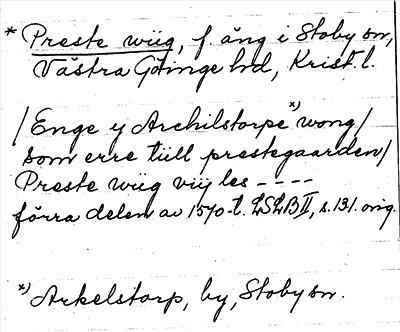 * Preste wiig, f. äng i Stoby sn,
Västra Göinge hd, Krist. l.
/Enge y Archilstorpe *) wong/
som erre tiill prestegaarden/
Preste wiig viij les ----
förra delen av 1570-t. LSLB II, s. 131. orig.
*) Arkelstorp, by, Stoby sn.